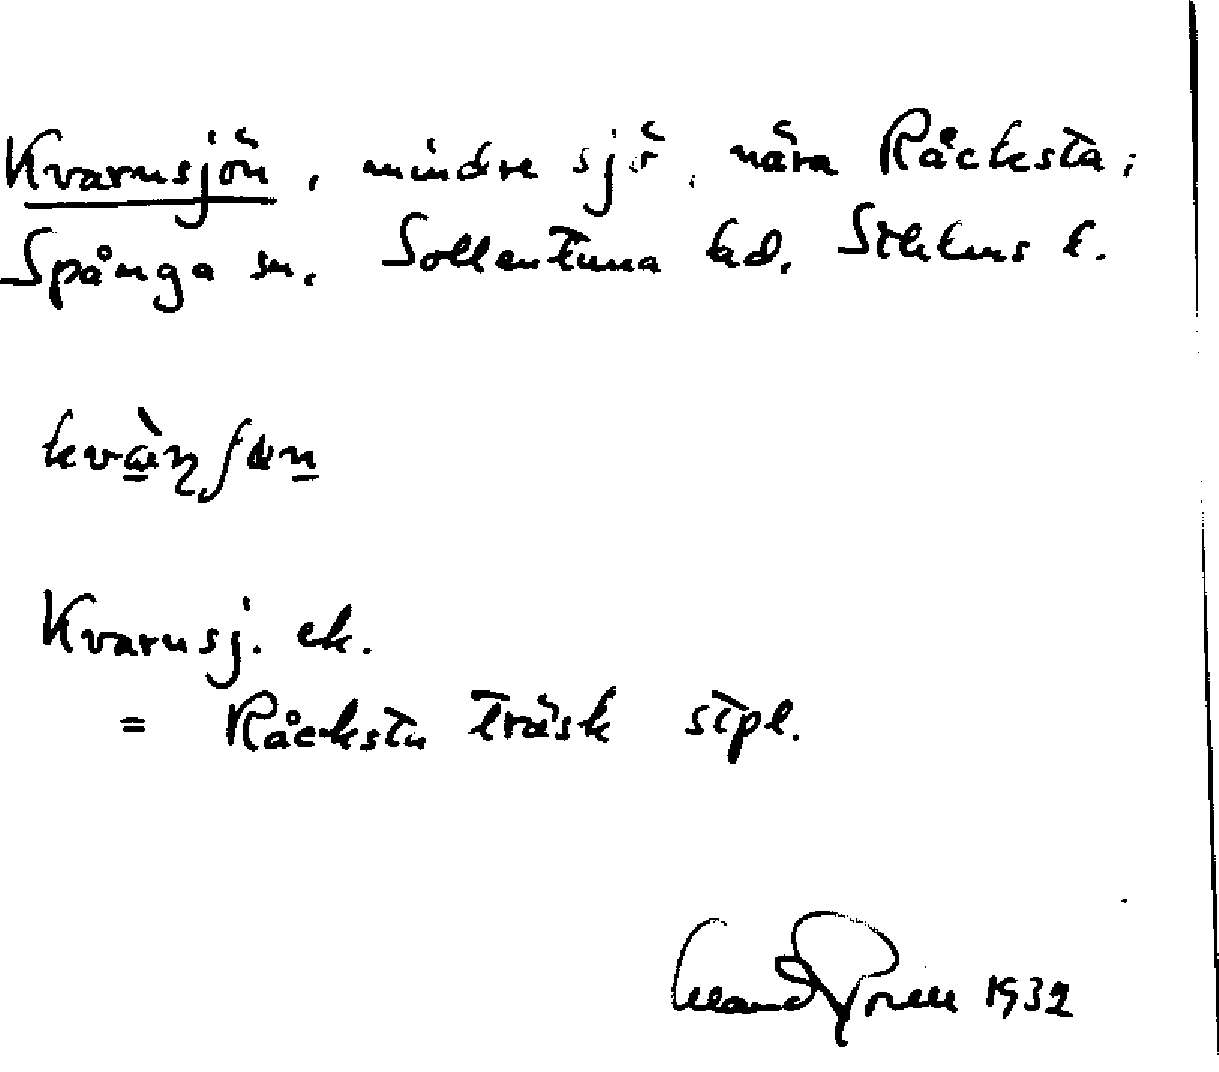 Kvarnsjön, mindre sjö, nära Råcksta,
Spånga sn. Sollentuna hd. Sthlms l.
Kvarnsj. ek.
= Råcksta träsk stpl.
1932